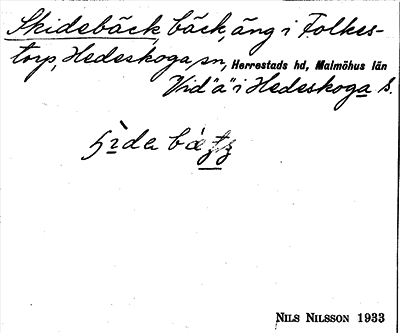 Skidebäck, bäck, äng i Folkes-
torp, Hedeskoga sn, Herrestads hd, Malmöhus län
Vid "ä" i Hedeskoga s.
NILS NILSSON 1933